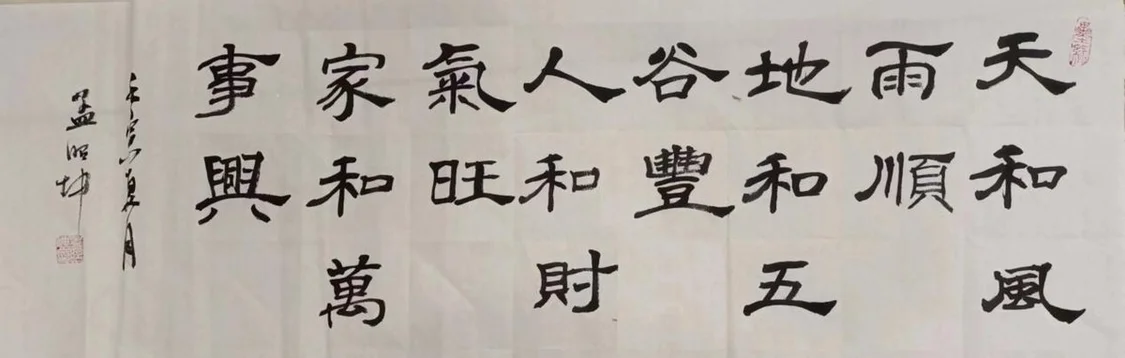 天和風
雨順
地和五
谷豐
人和財
氣旺
家和萬
事興
壬寅夏月
孟昭坤